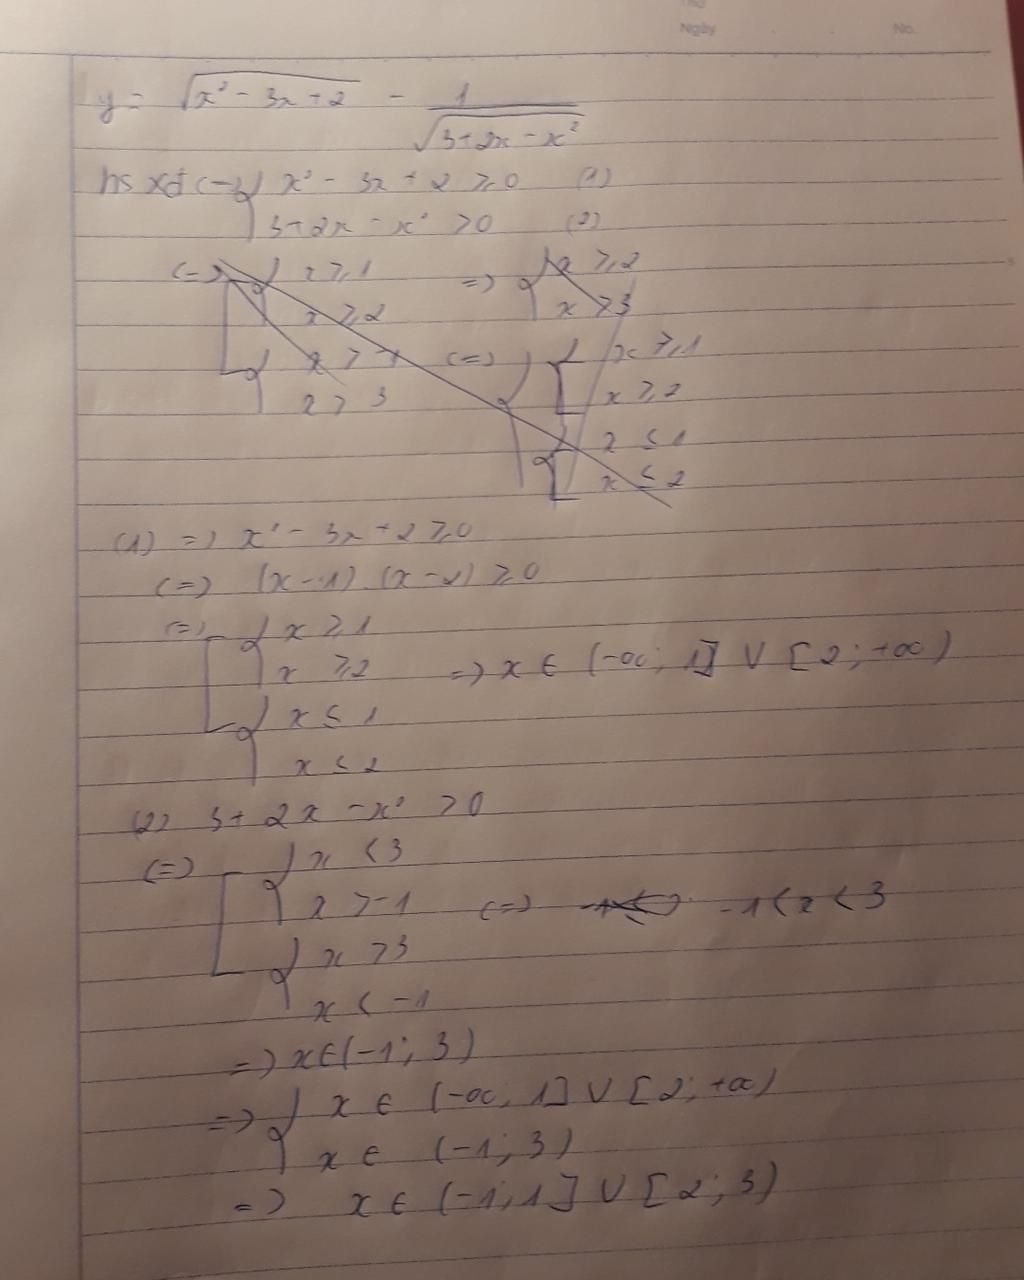 Ngày No.
y = √(x² - 3x + 2) - 1/√(3 + 2x - x²)
hs xđ (=) { x² - 3x + 2 ≥ 0 (1)
3 + 2x - x² > 0 (2)
(=) [ { x ≥ 1 => { x ≥ 2
x ≥ 2 x > 3
{ x > -1 (=) { [ x ≥ 1
x > 3 x ≥ 2
[ x ≤ 1
x ≤ 2
(1) => x² - 3x + 2 ≥ 0
(=) (x - 1) . (x - 2) ≥ 0
(=) [ { x ≥ 1
x ≥ 2 => x ∈ (-∞; 1] ∪ [2; +∞)
{ x ≤ 1
x ≤ 2
(2) 3 + 2x - x² > 0
(=) [ { x < 3
x > -1 (=) -1 < x < 3
{ x > 3
x < -1
=> x ∈ (-1; 3)
=> { x ∈ (-∞; 1] ∪ [2; +∞)
x ∈ (-1; 3)
=> x ∈ (-1; 1] ∪ [2; 3)